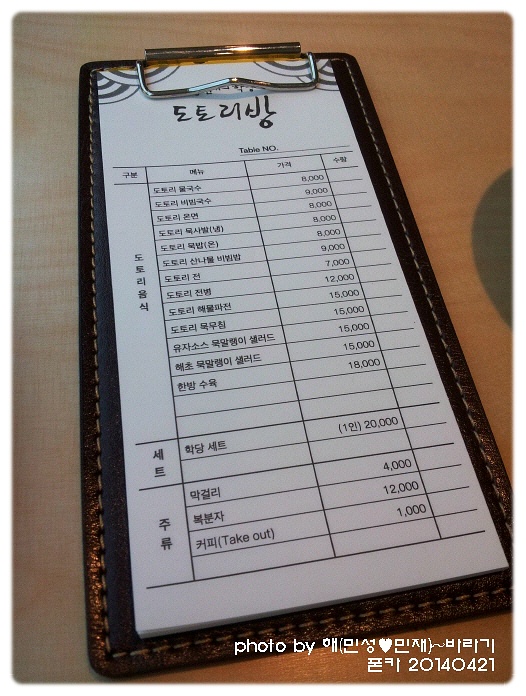 도토리방
Table NO.
구분 메뉴 가격 수량
도토리음식
도토리 물국수 8,000
도토리 비빔국수 9,000
도토리 온면 8,000
도토리 묵사발(냉) 8,000
도토리 묵밥(온) 8,000
도토리 산나물 비빔밥 9,000
도토리 전 7,000
도토리 전병 12,000
도토리 해물파전 15,000
도토리 묵무침 15,000
유자소스 묵말랭이 샐러드 15,000
해초 묵말랭이 샐러드 15,000
한방 수육 18,000
세트
학당 세트 (1인) 20,000
주류
막걸리 4,000
복분자 12,000
커피(Take out) 1,000
photo by 해(민성♥민재)~바라기
폰카 20140421